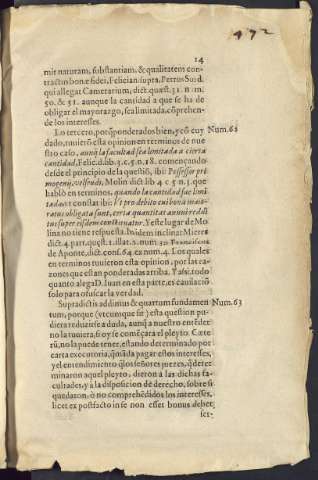 192
14
mit naturam, substantiam, & qualitatem con-
tractus bonæ fidei, Felician supra, Petrus Surd.
qui allegat Camerarium, dict. quæst. 31. num.
50. & 51. aunque la cantidad a que se ha de
obligar el mayorazgo, sea limitada, cõprehen-
de los intereses.
Lo tercero, porq̃ ponderados bien, y cõ cuy Num. 62
dado, tuuierõ esta opinion en terminos de nue
stro caso, aunq̃ la facultad sea limitada a cierta
cantidad, Felic. d. lib. 3. c. 5. n. 18. começando
desde el principio de la questiõ, ibi: Possessor pri
mogenij, vsfrudi, Molin dict. lib 4 c. 5 n. 3. que
habló en terminos, quando la cantidad fue limi
tada: vt constat ibi: Vt pro debito cui bona maio-
ratus obligata sunt, certa quantitas annui reddi
tus super eisdem constituatur. Y este lugar de Mo
lina no tiene respuesta. Ibidem inclinat Mieres
dict. 4. part. quæst. 1. illat. 2. num. 30 Franciscus
de Aponte, dict. cons. 64. ex num. 4. Los quales
en terminos tuuieron esta opinion, por las ra-
zones que estan ponderadas arriba. Y assi, todo
quanto alega D. Iuan en esta parte, es cauilaciõ
solo para ofuscar la verdad.
Supradictis addimus & quartum fundamen Num. 63
tum, porque (vtcumque sit) esta question pu-
diera reduzirse a duda, aunq̃ a nuestro entẽder
no la tuuiera, si oy se començara el pleyto. Cæte
rũ, no la puede tener, estando determinado por
carta executoria, q̃ mãda pagar estos intereses,
y el entendimiento q̃ los señores juezes, q̃ deter
minaron aquel pleyto, dieron a las dichas fa-
cultades, y a la disposicion de derecho, sobre si
quedaron, ò no comprehẽdidos los intereses,
licet ex postfacto in se non esset bonus debet
ser-